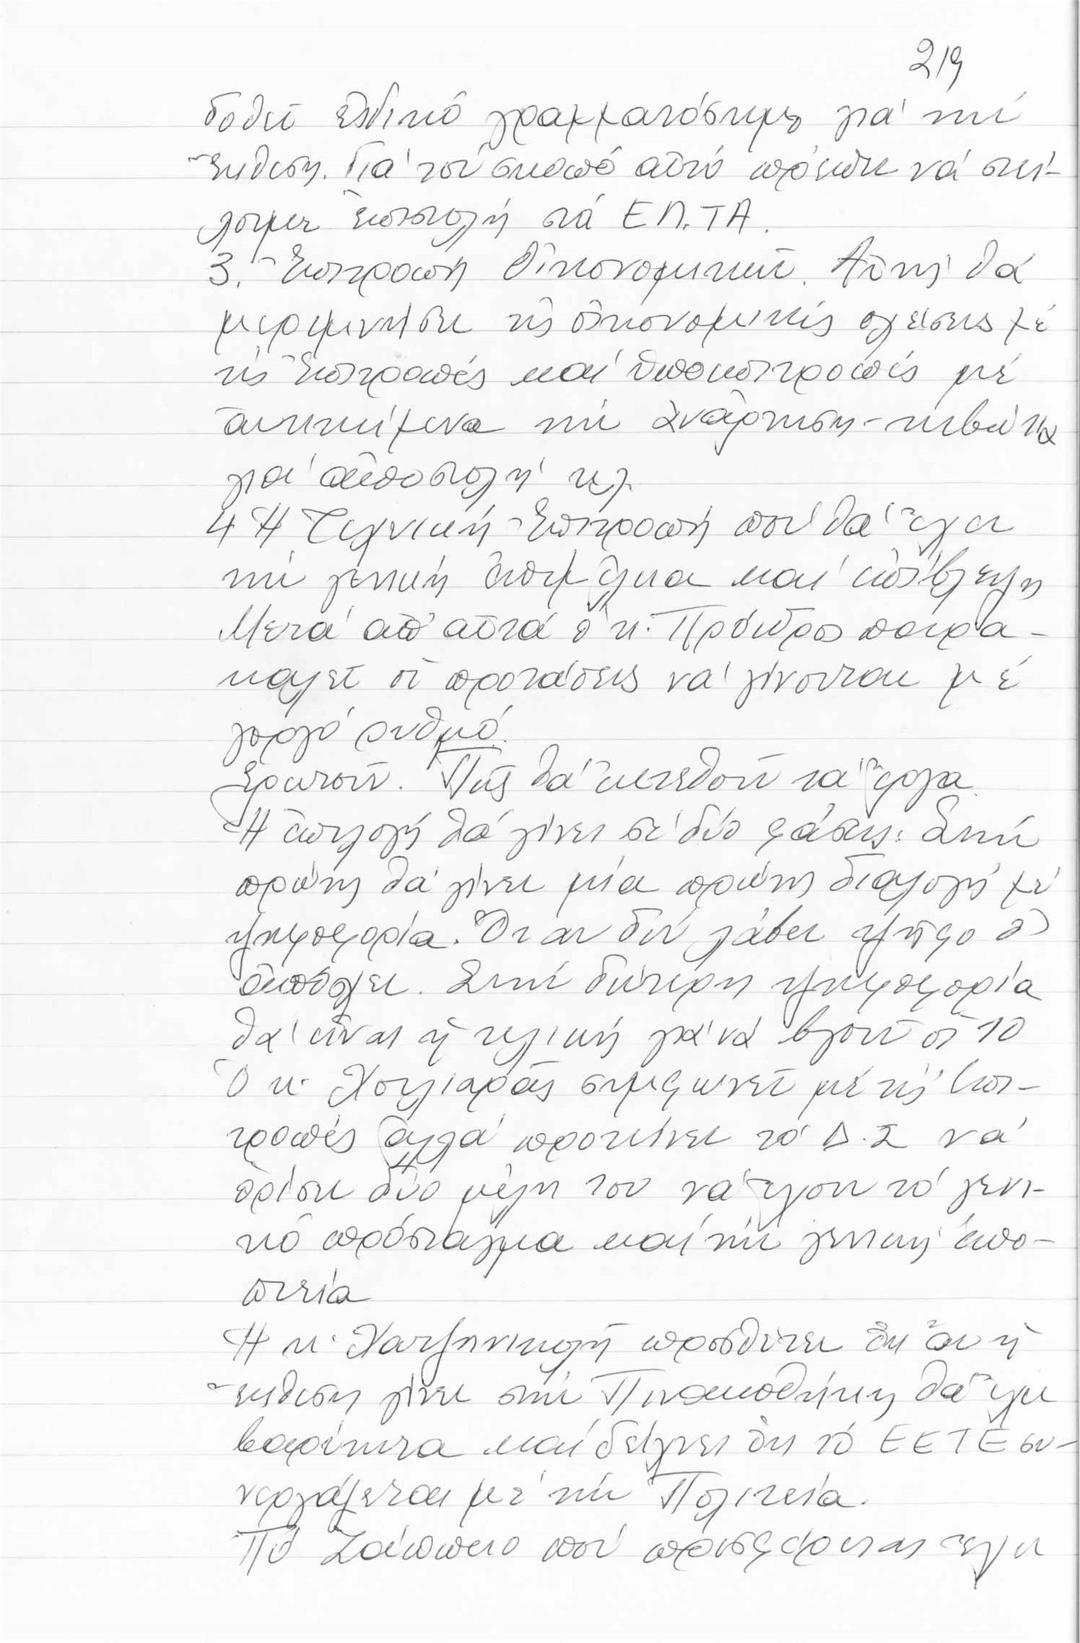 219
δοθεῖ εἰδικό γραμματόσημο γιά τήν
ἔκθεση. Γιά τόν σκοπό αὐτό πρέπει νά στεί-
λουμε ἐπιστολή στά ΕΛ.ΤΑ.
3. Ἐπιτροπή Οἰκονομική. Αὐτή θά
μεριμνήσει τίς οἰκονομικές σχέσεις μέ
τίς Ἐπιτροπές καί ὑποεπιτροπές μέ
ἀντικείμενα τήν ἀνάρτηση - κιβώτια
γιά ἀποστολή κλ.
4 Ἡ Τεχνική Ἐπιτροπή πού θά ἔχει
τήν γενική ἐπιμέλεια καί ἐπίβλεψη
Μετά ἀπ' αὐτά ὁ κ. Πρόεδρος παρα-
καλεῖ οἱ προτάσεις νά γίνονται μέ
γοργό ρυθμό.
Ἐρωτοῦν. Πῶς θά ἐκτεθοῦν τά ἔργα.
Ἡ ἐπιλογή θά γίνει σέ δύο φάσεις: Στήν
πρώτη θά γίνει μία πρώτη διαλογή μέ
ψηφοφορία. Ὅταν δέν λάβει ψῆφο θ'
ἀπόσχει. Στήν δεύτερη ψηφοφορία
θά εἶναι ἡ τελική γιά νά βγοῦν οἱ 10
Ὁ κ. Χουλιαρᾶς συμφωνεῖ μέ τίς ἐπι-
τροπές ἀλλά προτείνει τό Δ.Σ νά
ὁρίσει δύο μέλη του νά ἔχουν τό γενι-
κό πρόσταγμα καί τήν γενική ἐπο-
πτεία
Ἡ κ. Χατζηνικολῆ προσθέτει ὅτι ἄν ἡ
ἔκθεση γίνει στήν Πινακοθήκη θά ἔχει
βαρύτητα καί δείχνει ὅτι τό ΕΕΤΕ συ-
νεργάζεται μέ τήν Πολιτεία.
Τό Ζάππειο πού προσφέρεται ἔχει